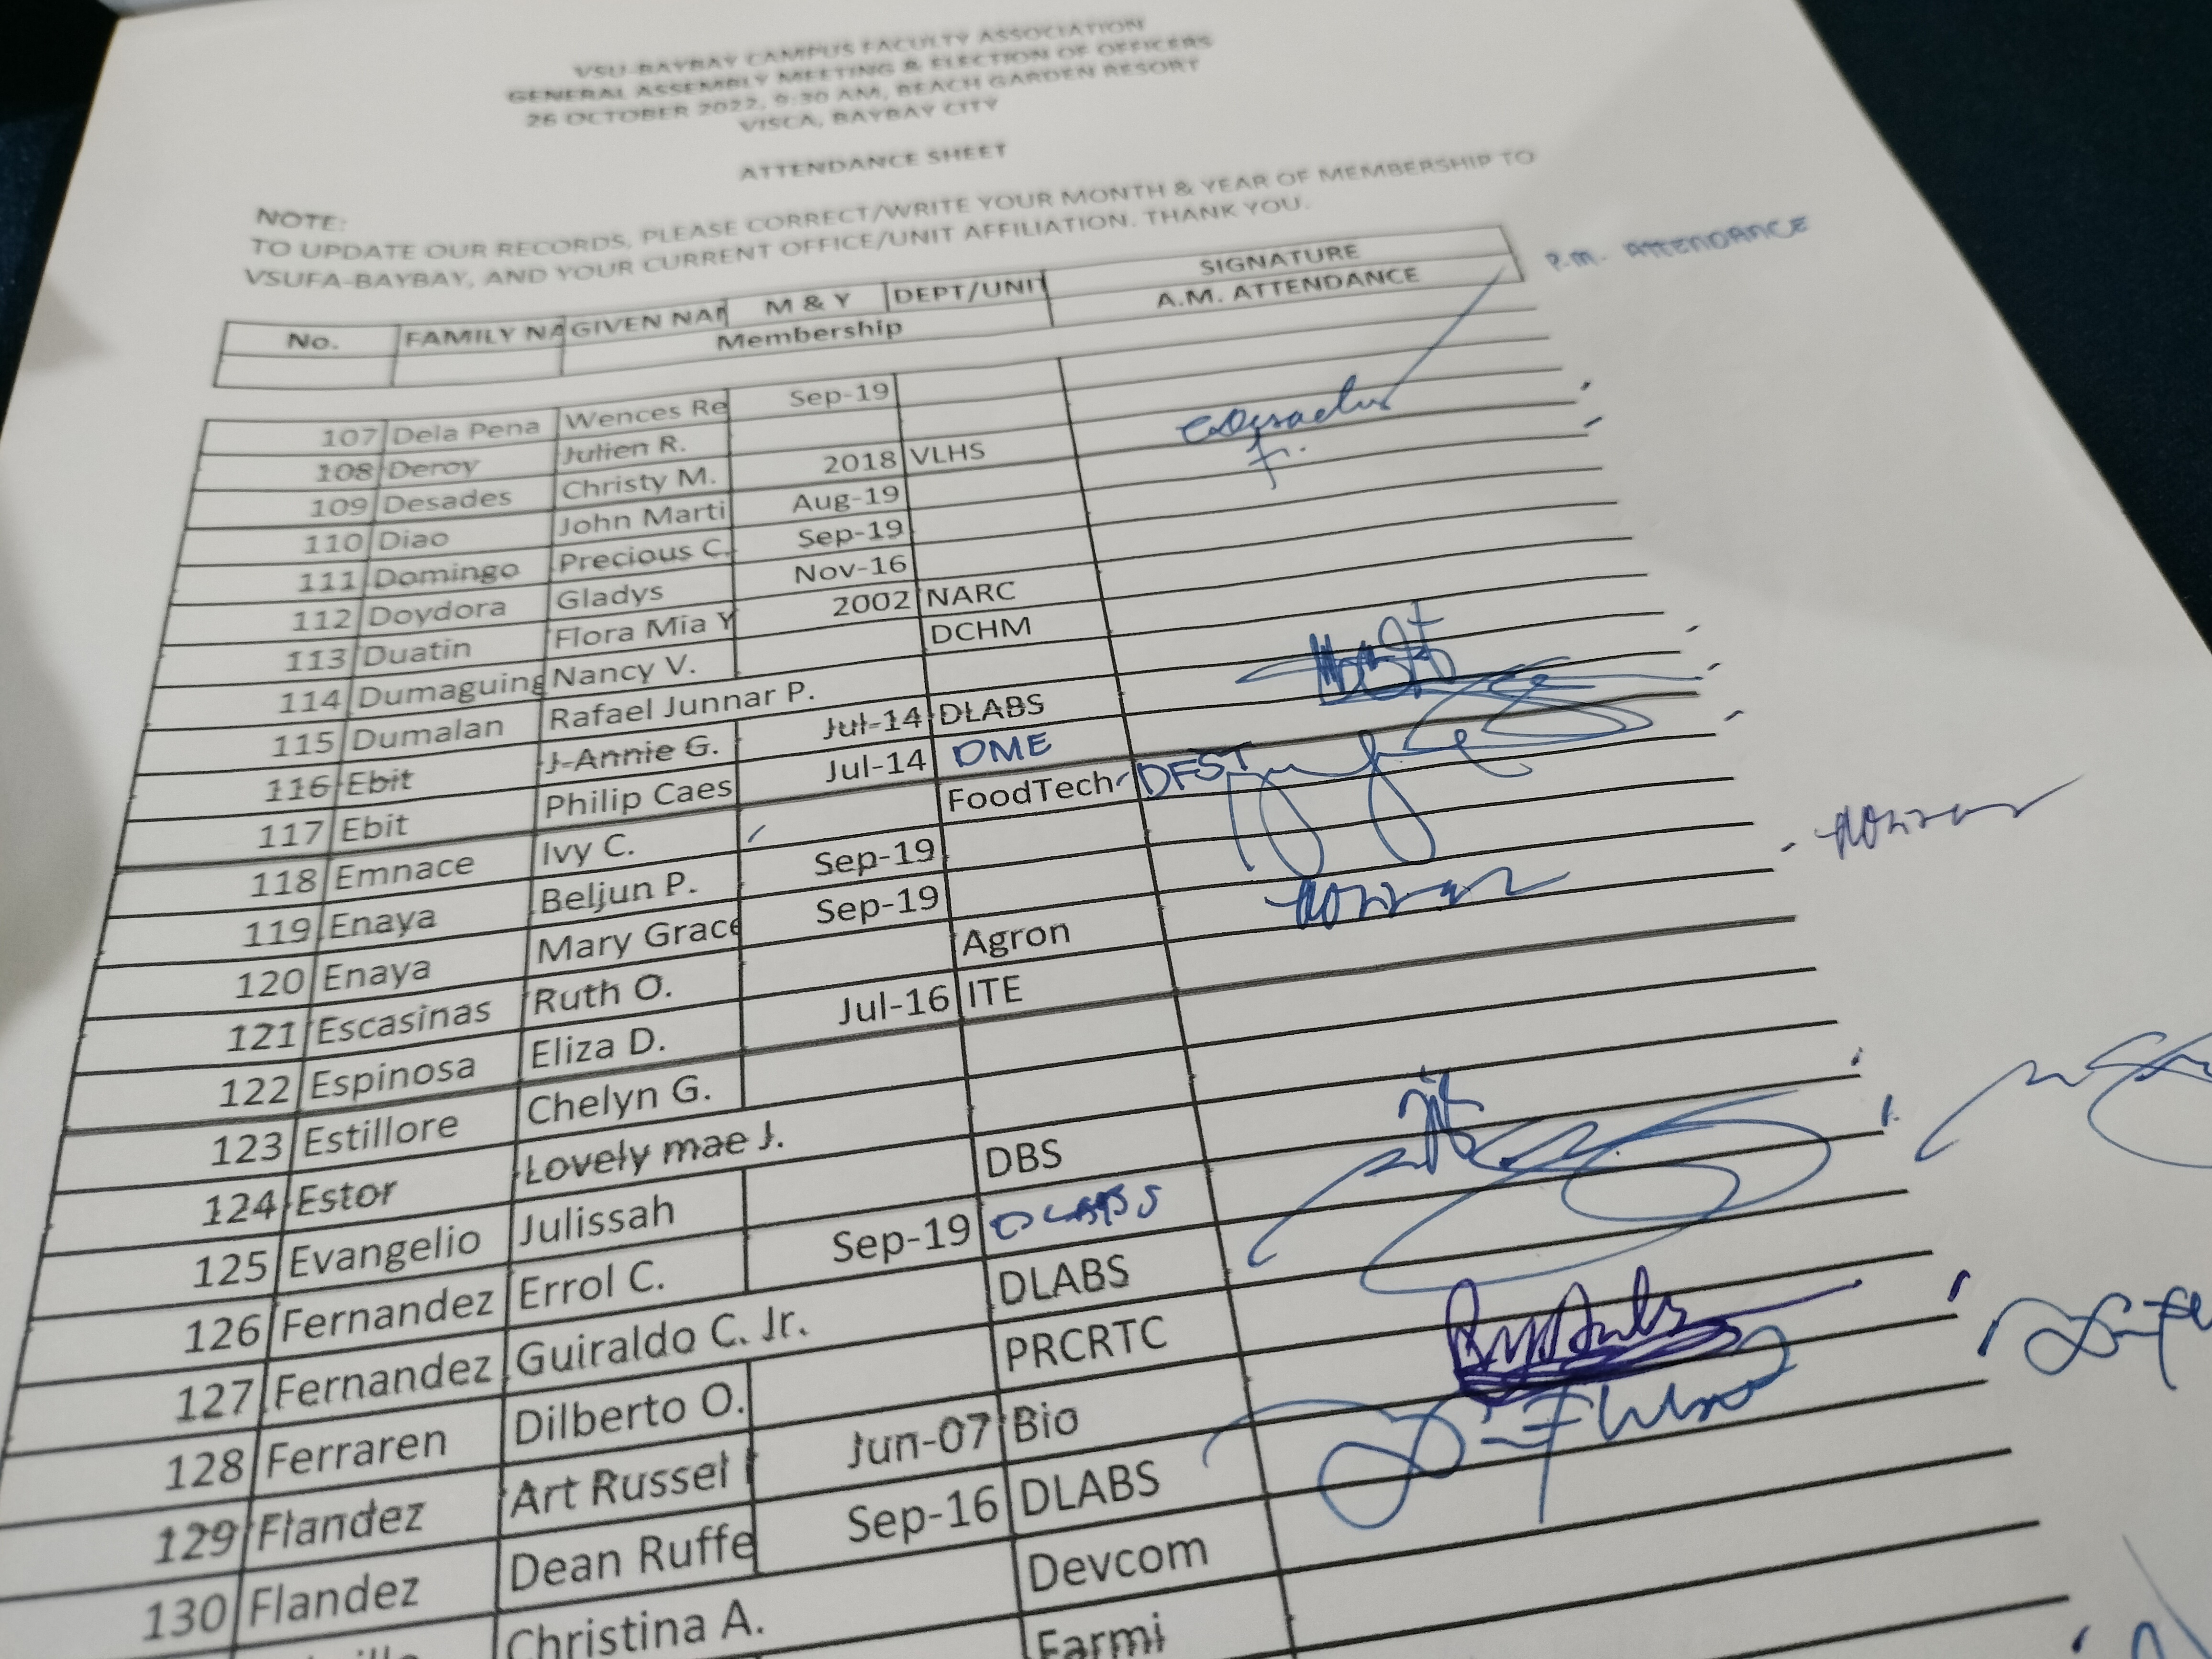 VSU-BAYBAY CAMPUS FACULTY ASSOCIATION
GENERAL ASSEMBLY MEETING & ELECTION OF OFFICERS
26 OCTOBER 2022, 9:30 AM, BEACH GARDEN RESORT
VISCA, BAYBAY CITY
ATTENDANCE SHEET
NOTE:
TO UPDATE OUR RECORDS, PLEASE CORRECT/WRITE YOUR MONTH & YEAR OF MEMBERSHIP TO
VSUFA-BAYBAY, AND YOUR CURRENT OFFICE/UNIT AFFILIATION. THANK YOU.
No. FAMILY NA GIVEN NAM M & Y DEPT/UNIT SIGNATURE
Membership A.M. ATTENDANCE P.M. ATTENDANCE
107 Dela Pena Wences Re Sep-19
108 Deroy Julien R.
109 Desades Christy M. 2018 VLHS
110 Diao John Marti Aug-19
111 Domingo Precious C. Sep-19
112 Doydora Gladys Nov-16
113 Duatin Flora Mia Y 2002 NARC
114 Dumaguing Nancy V. DCHM
115 Dumalan Rafael Junnar P.
116 Ebit J-Annie G. Jul-14 DLABS
117 Ebit Philip Caes Jul-14 DME
118 Emnace Ivy C. FoodTech DFST
119 Enaya Beljun P. Sep-19
120 Enaya Mary Grace Sep-19
121 Escasinas Ruth O. Agron
122 Espinosa Eliza D. Jul-16 ITE
123 Estillore Chelyn G.
124 Estor Lovely mae J.
125 Evangelio Julissah DBS
126 Fernandez Errol C. Sep-19 DLABS
127 Fernandez Guiraldo C. Jr. DLABS
128 Ferraren Dilberto O. PRCRTC
129 Flandez Art Russel Jun-07 Bio
130 Flandez Dean Ruffe Sep-16 DLABS
Christina A. Devcom
Farmi